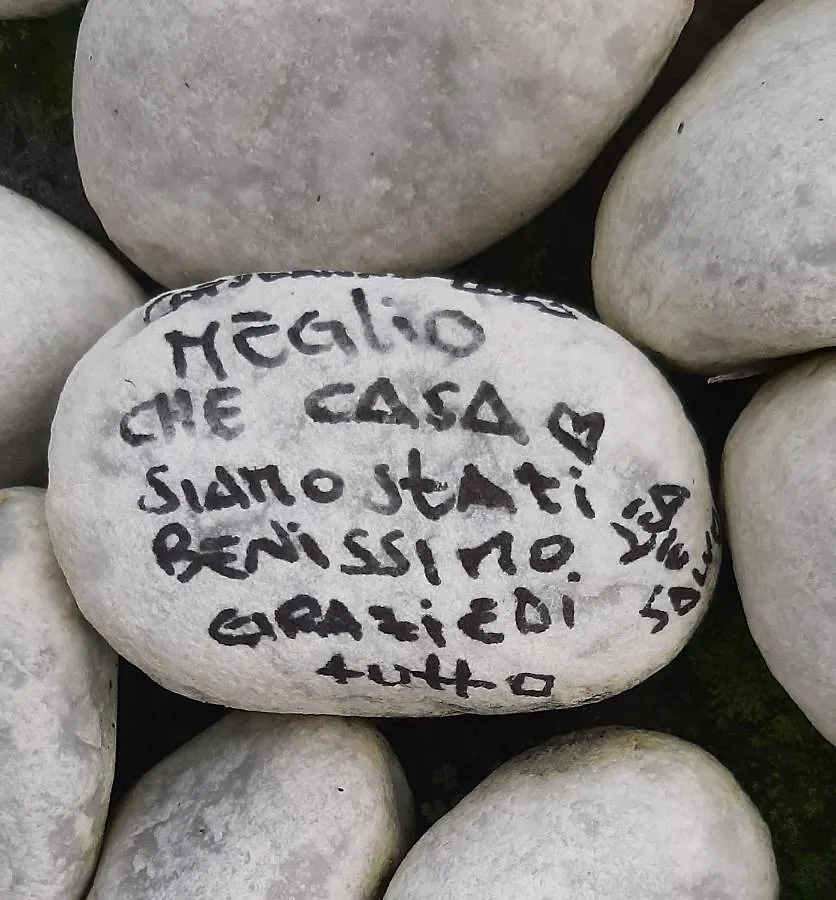 MEGLiO
CHE CASA
SIAMO StAti
BENiSSIMO
GRAZiE Di
tuttO